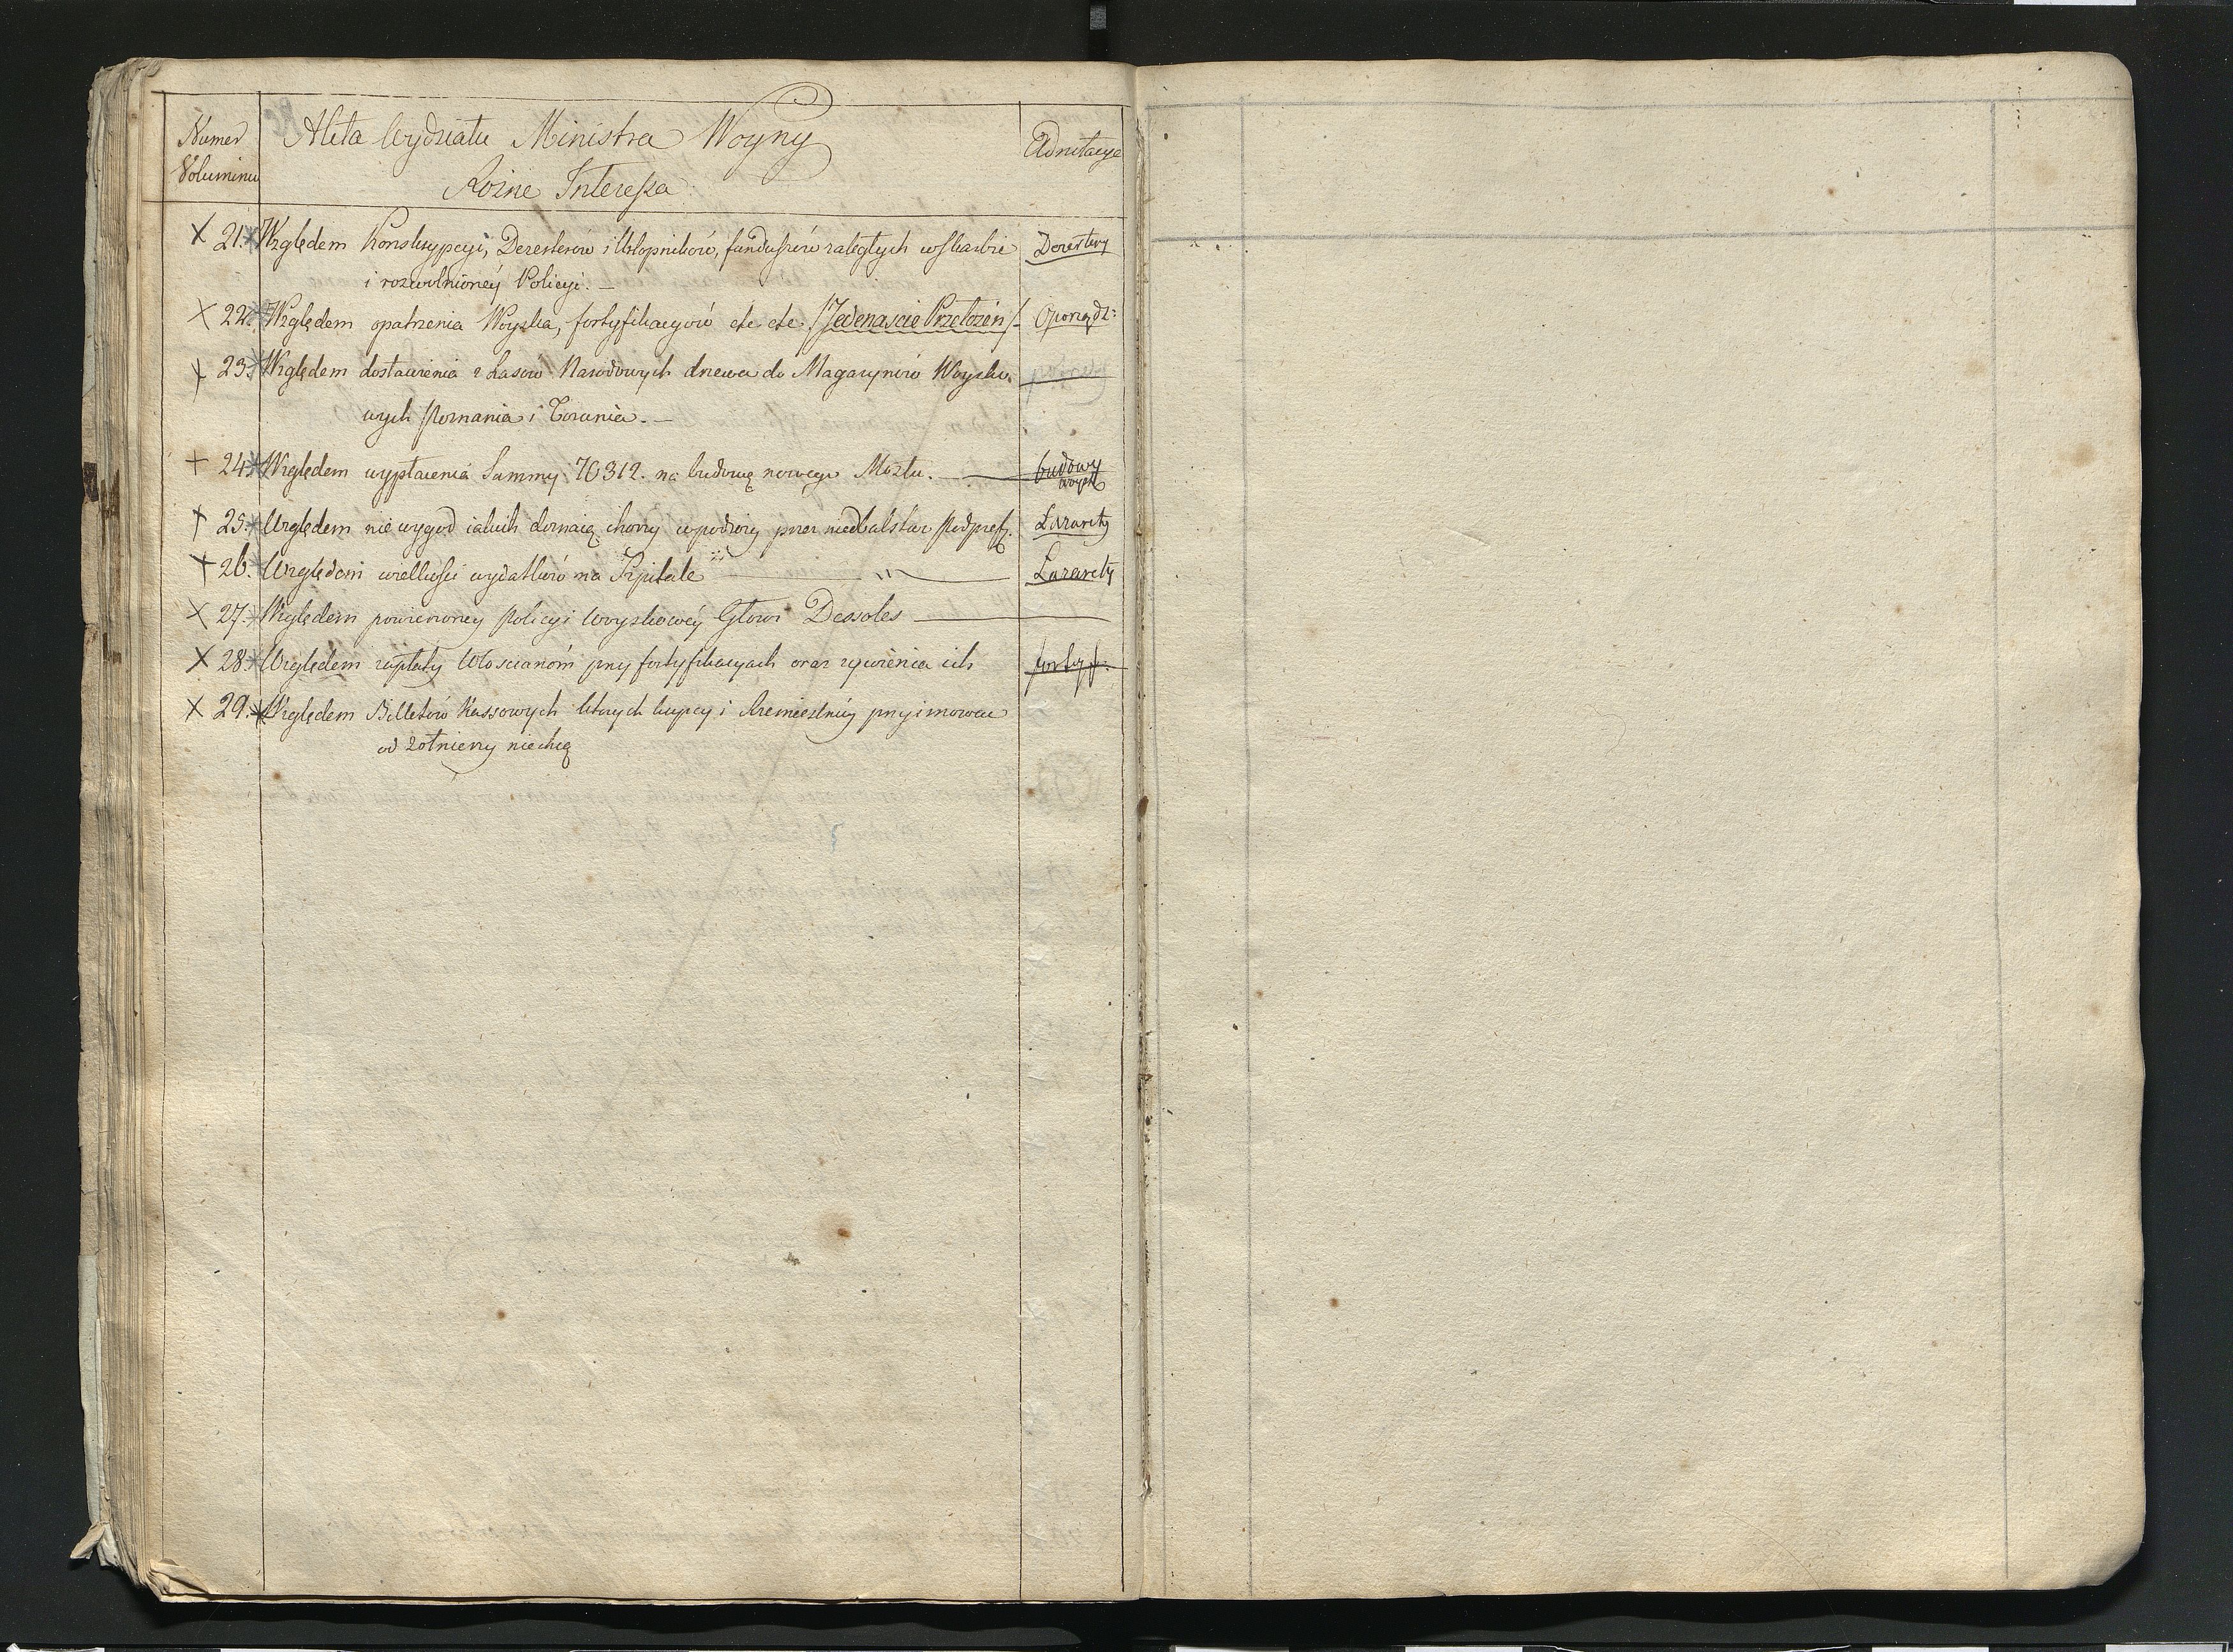 Numer Voluminu
Akta Wydziału Ministra Woyny
Adnotacye
Rożne Interessa
X 21. Względem Konskrypcyi, Dezerterów i Urlopników, funduszów zaległych w skarbie Dezertery
i rozwolnioney Policyi. —
X 22. Względem opatrzenia Woyska, fortyfikacyów etc etc. /Jedenascie Przełożen/ — Oporządz:
X 23. Względem dostawienia z Lasów Narodowych drzewa do Magazynów Woysko.
wych Poznania i Torunia. —
+ 24. Względem wypłacenia Summy 70312. na budowę nowego Mostu. — budowy
+ 25. Względem nie wygod iakich doznaią chorzy w podroży przez niedbalstwo Podpref. Lazarety
+ 26. Względem wielkości wydatków na Szpitale — " — Lazarety
X 27. Względem powierzoney Policyi Woyskowey Głowi Dessoles —
X 28. Względem zapłaty Włoscianom przy fortyfikacyach oraz zywienia ich fortyf.
X 29. Względem Billetów Kassowych ktorych kupcy i Rzemieslnicy przyimować
od żołnierzy niechcą